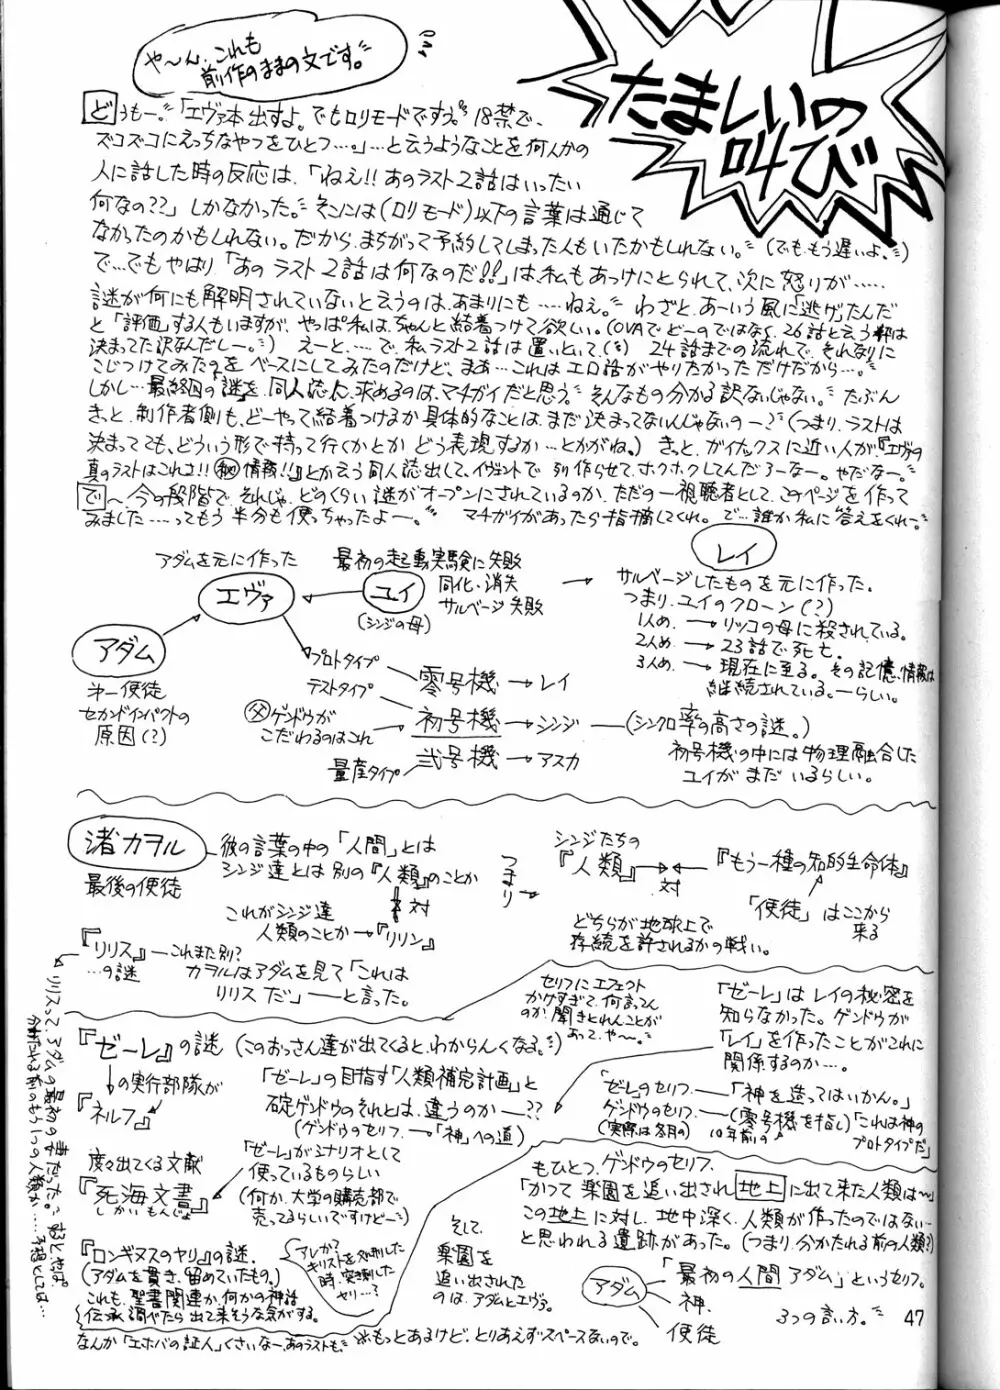 や〜ん、これも
前作のままの文です。
たましいの
叫び
どうもー。「エヴァ本出すよ。でもロリモードですっ。18禁で、
ズコズコにえっちなやつをひとつ…。」…と云うようなことを何人かの
人に話した時の反応は、「ねえ!!あのラスト2話はいったい
何なの??」しかなかった。そこには(ロリモード)以下の言葉は通じて
なかったのかもしれない。だから、まちがって予約してしまった人もいたかもしれない。(でも、もう遅いよ。)
で…でもやはり「あのラスト2話は何なのだ!!」は、私もあっけにとられて、次に怒りが……
謎が何にも解明されていないと云うのは、あまりにも……ねぇ。わざと、あーいう風に「逃げ」たんだ
と「評価」する人もいますが、やっぱ私は、ちゃんと結着つけて欲しい。(OVAでどーのではなく、26話と云う枠は
決まってた訳なんだしー。) えーと、…で、私、ラスト2話は置いといて、 24話までの流れで、それなりに
こじつけてみたのをベースにしてみたのだけど、まあ…これはエロ話がやりたかっただけだから…。
しかし…最終回の謎を、同人誌に求めるのは、マチガイだと思う。そんなもの分かる訳ないじゃない。たぶん
きっと、制作者側も、どーやって結着つけるか具体的なことは、まだ決まってないんじゃないの－?(つまり、ラストは
決まってても、どういう形で持って行くかとか どう表現するか…とかがね。)きっと、ガイナックスに近い人が『エヴァの
真のラストはこれさ!!㊙情報!!』とか云う同人誌出して、イヴェントで列作らせて、ホクホクしてんだろーなー。やだなー。
で〜今の段階で、それじゃ、どのくらい謎がオープンにされているのか、ただの一視聴者として、このページを作って
みました……ってもう半分も使っちゃったよー。 マチガイがあったら指摘してくれ。で…誰か私に答えをくれー。
アダムを元に作った
エヴァ
最初の起動実験に失敗
ユイ
同化・消失
サルベージ失敗
(シンジの母)
レイ
サルベージしたものを元に作った。
つまり、ユイのクローン(?)
1人め、→リッコの母に殺されている。
2人め、→23話で死亡。
3人め、→現在に至る。その記憶、情報は
継続されている。－らしい。
アダム
第一使徒
セカンドインパクトの
原因(?)
プロトタイプ 零号機→レイ
テストタイプ 初号機→シンジ (シンクロ率の高さの謎。)
父 ゲンドウが
こだわるのはこれ
量産タイプ 弐号機→アスカ
初号機の中には物理融合した
ユイがまだいるらしい。
渚カヲル
最後の使徒
彼の言葉の中の「人間」とは
シンジ達とは別の『人類』のことか
対
これがシンジ達
人類のことか→『リリン』
つまり
シンジたちの
『人類』
対
『もう一種の知的生命体』
「使徒」はここから
来る
どちらが地球上で
存続を許されるかの戦い。
『リリス』－これまた別?
…の謎
カヲルはアダムを見て「これは
リリスだ」――と言った。
リリスって、アダムの最初の妻だった。あと、さっぱ
分かたれる前のもう1つの人類か……予想としては…
『ゼーレ』の謎 (このおっさん達が出てくると、わからんくなる。)
の実行部隊が
『ネルフ』
セリフにエフェクト
かけすぎて、何言ってん
のか聞きとれんことが
あって、や〜。
「ゼーレ」の目指す「人類補完計画」と
碇ゲンドウのそれとは、違うのか――??
(ゲンドウのセリフ、→「神」への道)
「ゼーレ」はレイの秘密を
知らなかった。ゲンドウが
「レイ」を作ったことがこれに
関係するのか…。
「ゼーレ」のセリフ、――「神を造ってはいかん。」
ゲンドウのセリフ、――(零号機を指し)「これは神の
プロトタイプだ」
(実際は冬月の) 10年前の
度々出てくる文献
『死海文書』
しかいもんじょ
「ゼーレ」がシナリオとして
使っているものらしい
(何か、大学の購売部で
売ってるらしいですけどー)
『ロンギヌスのヤリ』の謎、
(アダムを貫き、留めていたもの。)
これも、聖書関連か、何かの神話
伝承調べたら出て来そうな気がする。
アレか?
キリストを処刑した
時、突き刺した
ヤリ…?
もひとつ、ゲンドウのセリフ、
「かつて楽園を追い出され地上に出て来た人類は〜」
この地上に対し、地中深く、人類が作ったのではない…
と思われる遺跡があった。(つまり、分かたれる前の人類?)
そして、
楽園を
追い出された
のは、アダムとエヴァ。
アダム
「最初の人間アダム」というセリフ。
神、
使徒
3つの言い方。
なんか「エホバの証人」くさいなー、あのラストも、
※もっとあるけど、とりあえずスペースないので。
47